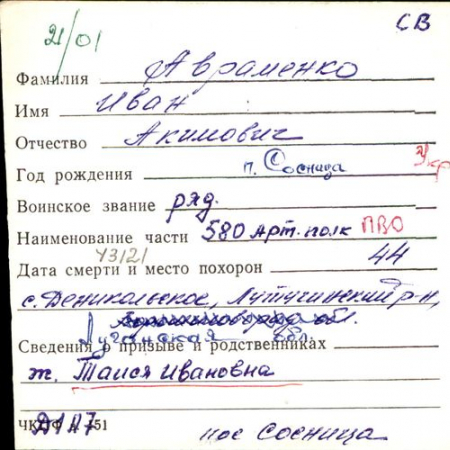 21/01 СВ
Фамилия Авраменко
Имя Иван
Отчество Акимович
Год рождения п. Сосница Укр
Воинское звание ряд.
Наименование части 580 арт. полк ПВО
43121
Дата смерти и место похорон 44
с. Деникольское, Лутугинский р-н,
Луганская обл.
Сведения о призыве и родственниках
ж. Таися Ивановна
Д117
пос Сосница